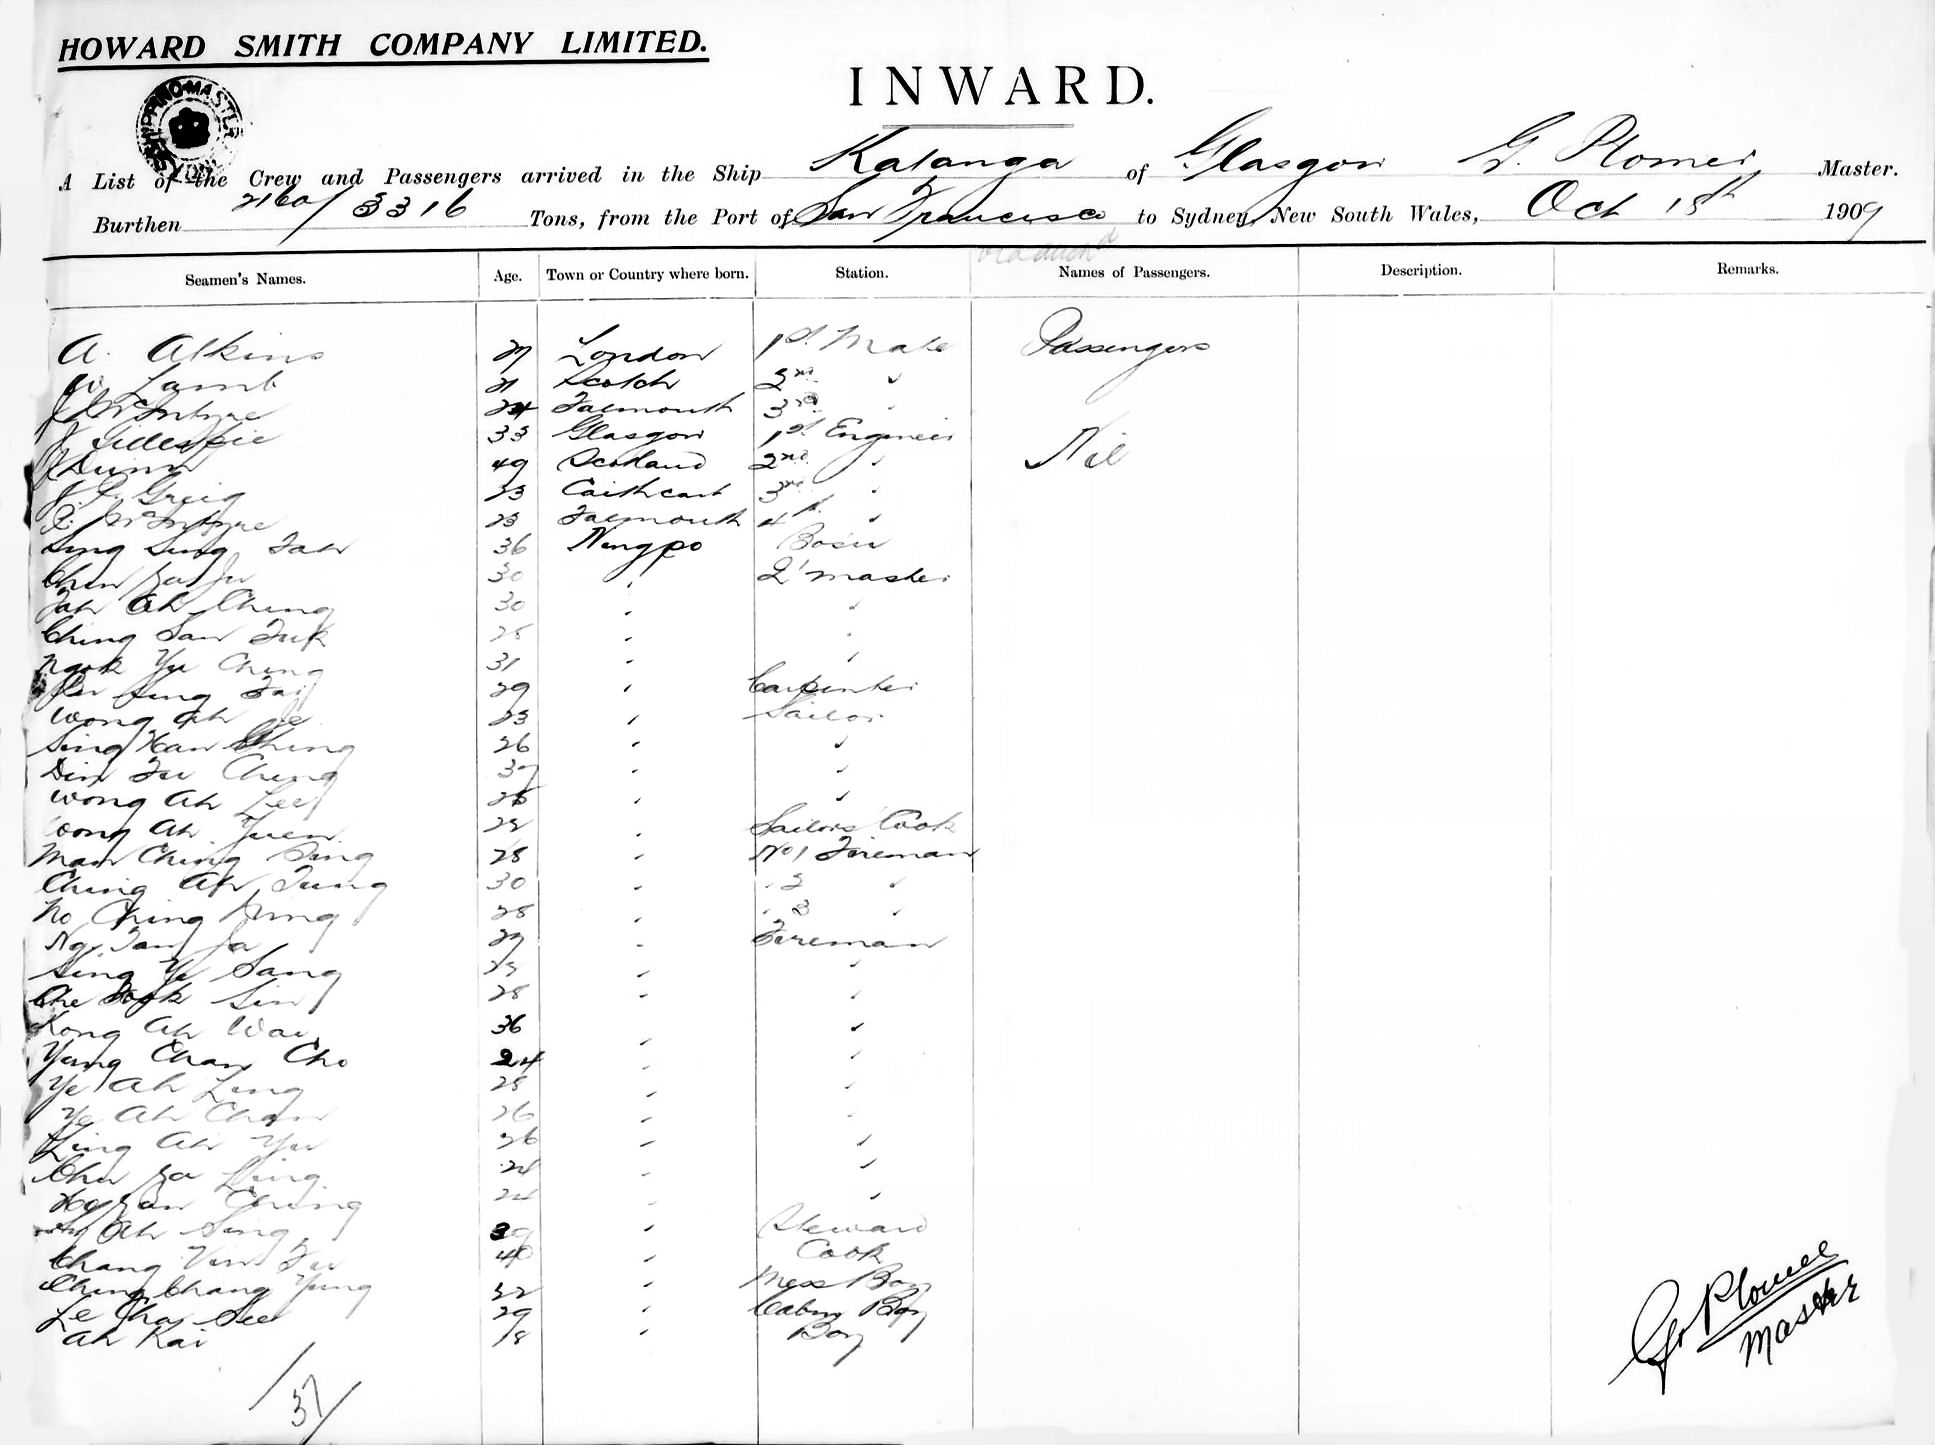 HOWARD SMITH COMPANY LIMITED.
INWARD.
A List of the Crew and Passengers arrived in the Ship Katanga of Glasgow G. Plomer Master.
Burthen 2160/3316 Tons, from the Port of San Francisco to Sydney, New South Wales, Oct 15th 1909
Seamen's Names. Age. Town or Country where born. Station. Names of Passengers. Description. Remarks.
A. Atkins 27 London 1st Mate Passengers
W Lamb 21 Scotch 2nd "
J McIntyre 24 Falmouth 3rd "
J Gillespie 33 Glasgow 1st Engineer
Dunn 49 Scotland 2nd " Nil
J. P. Greig 23 Caithcart 3rd "
R. McIntyre 23 Falmouth 4th "
Sing Sung Fah 36 Ningpo Bosun
Chin Za Ju 30 " Q'master
Fah Ah Ching 30 " "
Ching San Fuk 28 " "
Ngok Yu Ching 31 " "
Sung Fai 29 " Carpenter
Wong Ah Je 23 " Sailor
Sing Han Ching 26 " "
Din Fu Ching 37 " "
Wong Ah Lee 26 " "
Wong Ah Yuen 28 " Sailors Cook
Man Ching Sing 28 " No 1 Fireman
Ching Ah Fung 30 " " 2 "
Ho Ching Ming 28 " " 3 "
Ng Fan Ja 29 " Fireman
Sing Ye Sang 28 " "
Che Fook Sin 28 " "
Kong Ah Wai 36 " "
Yung Chan Cho 24 " "
Ye Ah Ling 28 " "
Ye Ah Chan 26 " "
Ling Ah Yu 26 " "
Chu Za Ling 24 " "
Ching 24 " "
Ah Sing 39 " Steward
Chang Vun Fu 40 " Cook
Ching Chang Yung 32 " Mess Boy
Le Cha See 29 " Cabin Boy
Ah Kai 18 " Boy
37
G Plomer
Master